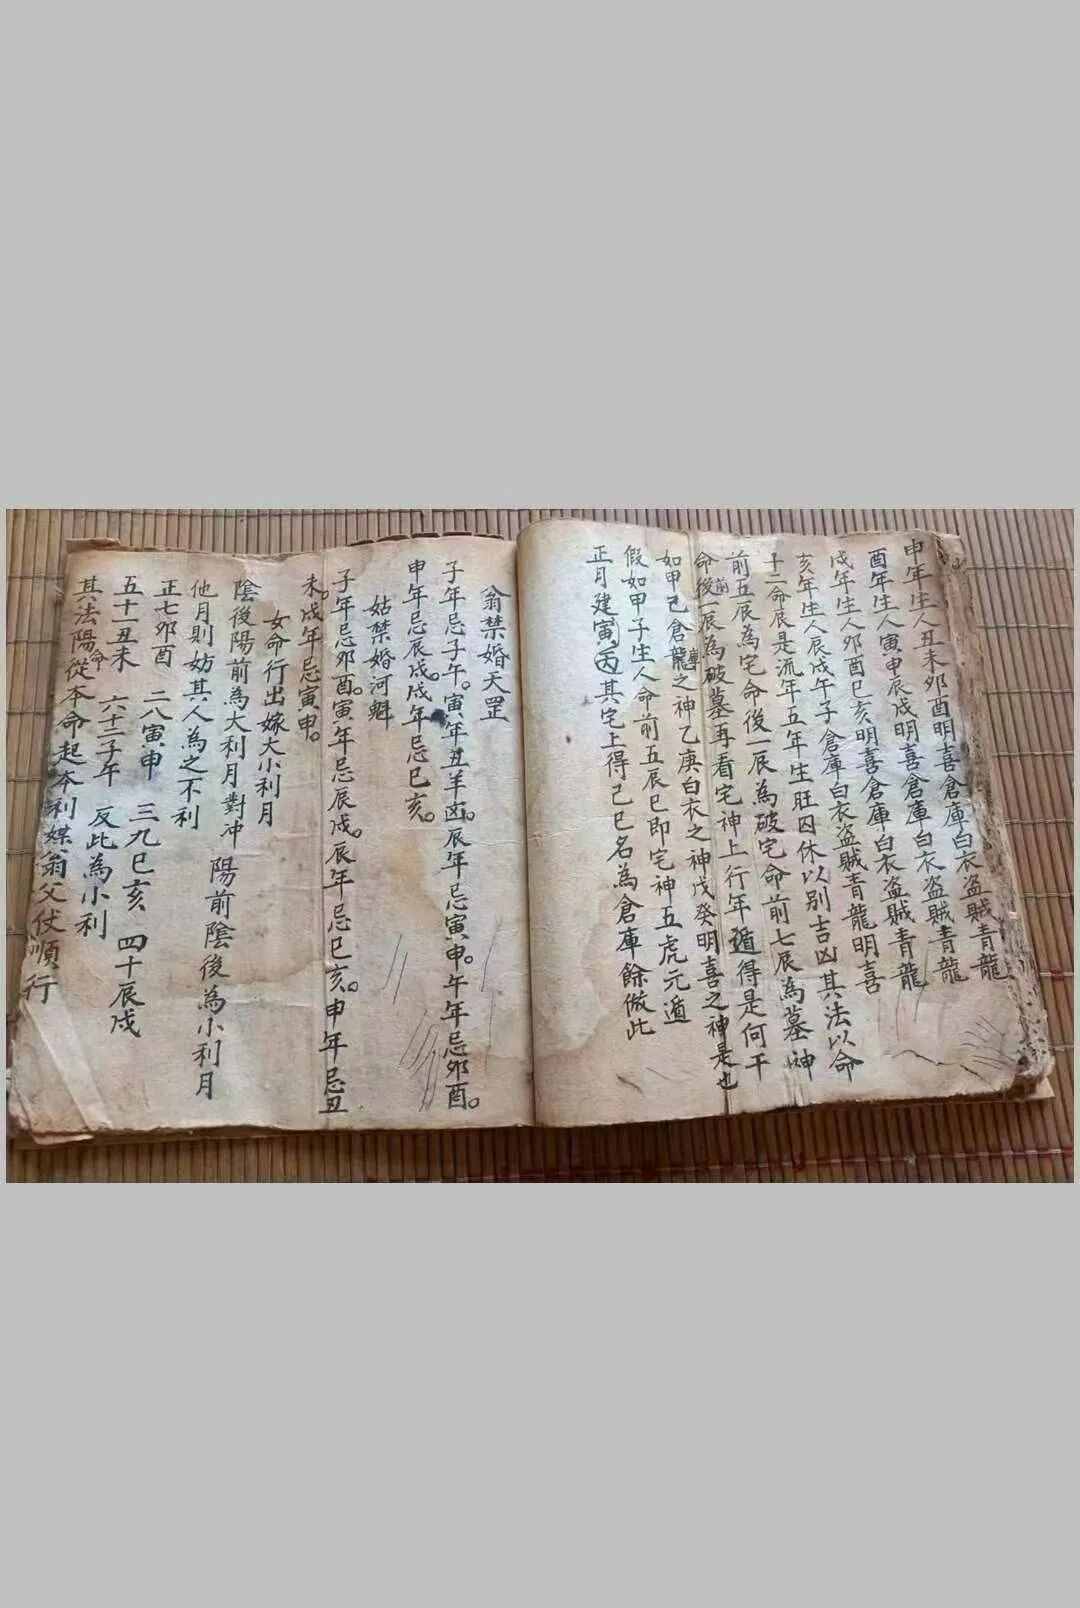 申年生人丑未夘酉明喜倉庫白衣盗賊青龍
酉年生人寅申辰戌明喜倉庫白衣盗賊青龍
戌年生人夘酉巳亥明喜倉庫白衣盗賊青龍
亥年生人辰戌午子倉庫白衣盗賊青龍明喜
十二命辰是流年五年生旺囚休以别吉凶其法以命
前五辰為宅命後一辰為破宅命前七辰為墓神
命後前一辰為破墓再看宅神上行年遁得是何干
如甲己倉龍庫之神乙庚白衣之神戊癸明喜之神是也
假如甲子生人命前五辰巳即宅神五虎元遁
正月建寅丙其宅上得己巳名為倉庫餘倣此
翁禁婚天罡
子年忌子午。寅年丑羊凶。辰年忌寅申。午年忌夘酉。
申年忌辰戌戌年忌巳亥。
姑禁婚河魁
子年忌夘酉。寅年忌辰戌。辰年忌巳亥。申年忌丑
未。戌年忌寅申。
女命行出嫁大小利月
陰後陽前為大利月對冲 陽前陰後為小利月
他月則妨其人為之不利
正七夘酉 二八寅申 三九巳亥 四十辰戌
五十一丑未 六十二子午 反此為小利
其法陽命從本命起本利媒翁父仗順行